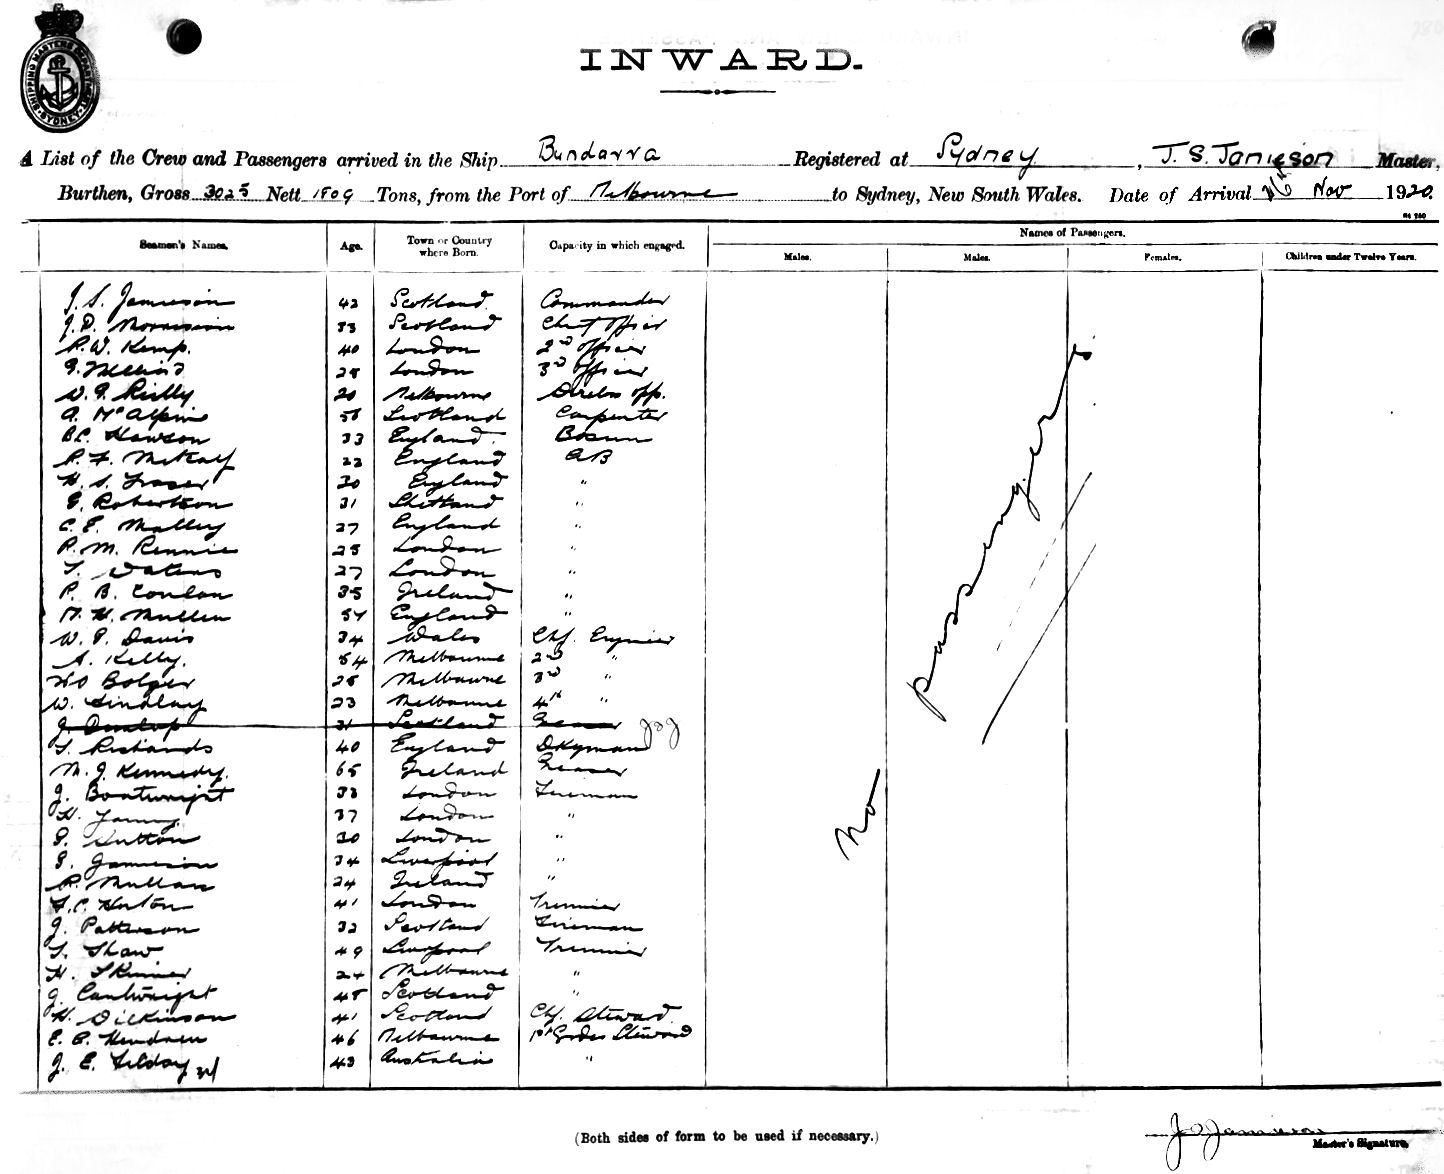 SHIPPING MASTER'S DEPARTMENT SYDNEY
INWARD.
A List of the Crew and Passengers arrived in the Ship Bundarra Registered at Sydney, J. S. Jamieson Master,
Burthen, Gross 3025 Nett 1809 Tons, from the Port of Melbourne to Sydney, New South Wales. Date of Arrival Nov 1920.
Seamen's Names. Age. Town or Country where Born. Capacity in which engaged. Names of Passengers.
Males. Males. Females. Children under Twelve Years.
J. S. Jamieson 42 Scotland Commander
J. D. Morrison 33 Scotland Chief Officer
R. W. Kemp. 40 London 2nd Officer
28 London 3rd Officer
Reilly 20 Melbourne Wireless opp.
A. McAlpine 58 Scotland Carpenter
Hewson 33 England. Bosun
R. F. Metcalf 22 England AB
H. S. Fraser 30 England "
E. Robertson 31 Shetland "
C. E. Malley 27 England "
R. M. Rennie 28 London "
T. Waters 27 London "
P. B. Conlan 35 Ireland "
Mullen 54 England "
W. P. Davis 34 Wales Chf. Engineer
A. Kelly. 54 Melbourne 2nd "
Bolger 28 Melbourne 3rd "
W. Findlay 23 Melbourne 4th "
J. Dunlop 31 Scotland Greaser JSJ
T. Richards 40 England Dkyman
M. J. Kennedy. 65 Ireland Greaser
J. Boatwright 33 London Fireman
H. 37 London "
Sutton 30 London "
Jamieson 34 Liverpool "
R. Mullan 24 Ireland "
Horton 41 London Trimmer
J. Patterson 32 Scotland Fireman
T. Shaw 49 Liverpool Trimmer
H. Skinner 24 Melbourne "
J. Cartwright 48 Scotland "
H. Dilkinson 41 Scotland Chf. Steward
46 Melbourne 1st Grdes Steward
J. E. 43 Australia "
34
No passengers
(Both sides of form to be used if necessary.)
J S Jamieson
Master's Signature.